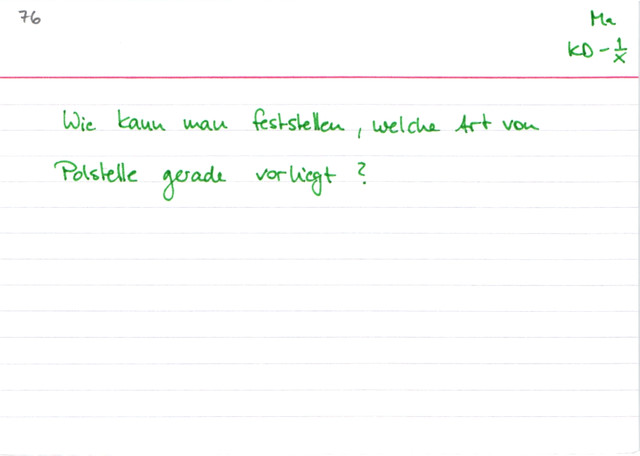 76
Ma
KD - 1/x
Wie kann man feststellen, welche Art von
Polstelle gerade vorliegt?